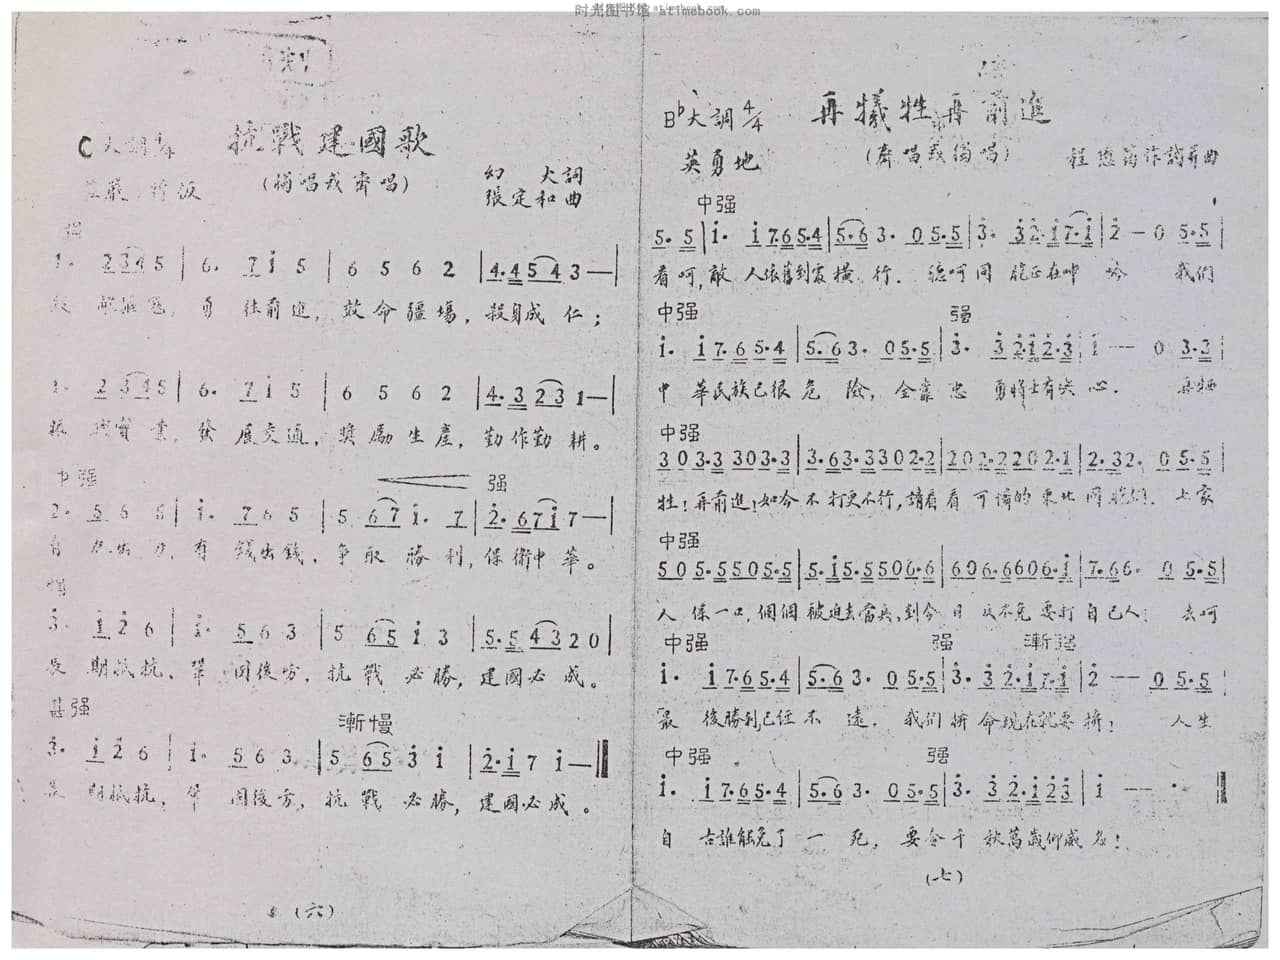 时光图书馆 atimebook.com
C大調 4/4
抗戰建國歌
(獨唱或齊唱)
幻 大詞
張定和曲
强
1. 2 3 4 5 | 6. 7 i 5 | 6 5 6 2 | 4.4 5 4 3 — |
勇 往前進, 效命疆場, 殺身成 仁;
1. 2 3 4 5 | 6. 7 i 5 | 6 5 6 2 | 4.3 2 3 1 — |
振 興實業, 發 展交通, 獎勵生產, 勤作勤 耕。
中强 强
2. 5 6 5 | i. 7 6 5 | 5 6 7 i. 7 | 2.6 7 i 7 — |
有 力出力, 有 錢出錢, 爭取 勝利, 保衛中 華。
3. i 2 6 | i. 5 6 3 | 5 6 5 i 3 | 5.5 4 3 2 0 |
長 期抵抗, 鞏 固後方, 抗戰 必勝, 建國必 成。
甚强 漸慢
3. i 2 6 | i. 5 6 3 | 5 6 5 3 i | 2.i 7 i — ‖
長 期抵抗, 鞏 固後方, 抗戰 必勝, 建國必成。
(六)
B♭大調 4/4
再犧牲再前進
(齊唱或獨唱)
英勇地
中强
5.5 | i. i 7.6 5.4 | 5.6 3. 0 5.5 | 3. 3 2.i 7.i | 2 — 0 5.5 |
看呵, 敵 人依舊到處橫 行. 聽呵同 胞正在呻 吟 我們
中强 强
i. i 7.6 5.4 | 5.6 3. 0 5.5 | 3. 3 2.i 2.3 | i — — 0 3.3 |
中 華民族已很危 險, 全靠忠 勇將士有决 心. 再犧
中强
3 0 3.3 3 0 3.3 | 3.6 3.3 3 0 2.2 | 2 0 2.2 2 0 2.1 | 2.3 2. 0 5.5 |
牲! 再前進! 如今不打更不行, 請看看可憐的東北同胞們. 大家
中强
5 0 5.5 5 0 5.5 | 5.i 5.5 5 0 6.6 | 6 0 6.6 6 0 6.i | 7.6 6. 0 5.5 |
人 係一口, 個個被迫去當兵, 到今日 要打自己人! 去呵
中强 强 漸强
i. i 7.6 5.4 | 5.6 3. 0 5.5 | 3. 3 2.i 7.i | 2 — — 0 5.5 |
最 後勝利已經不 遠. 我們拼 命現在就要拼! 人生
中强 强
i. i 7.6 5.4 | 5.6 3. 0 5.5 | 3. 3 2.i 2 3 | i — — · ‖
自 古誰能免了一 死, 要令千 秋萬歲仰威名!
(七)